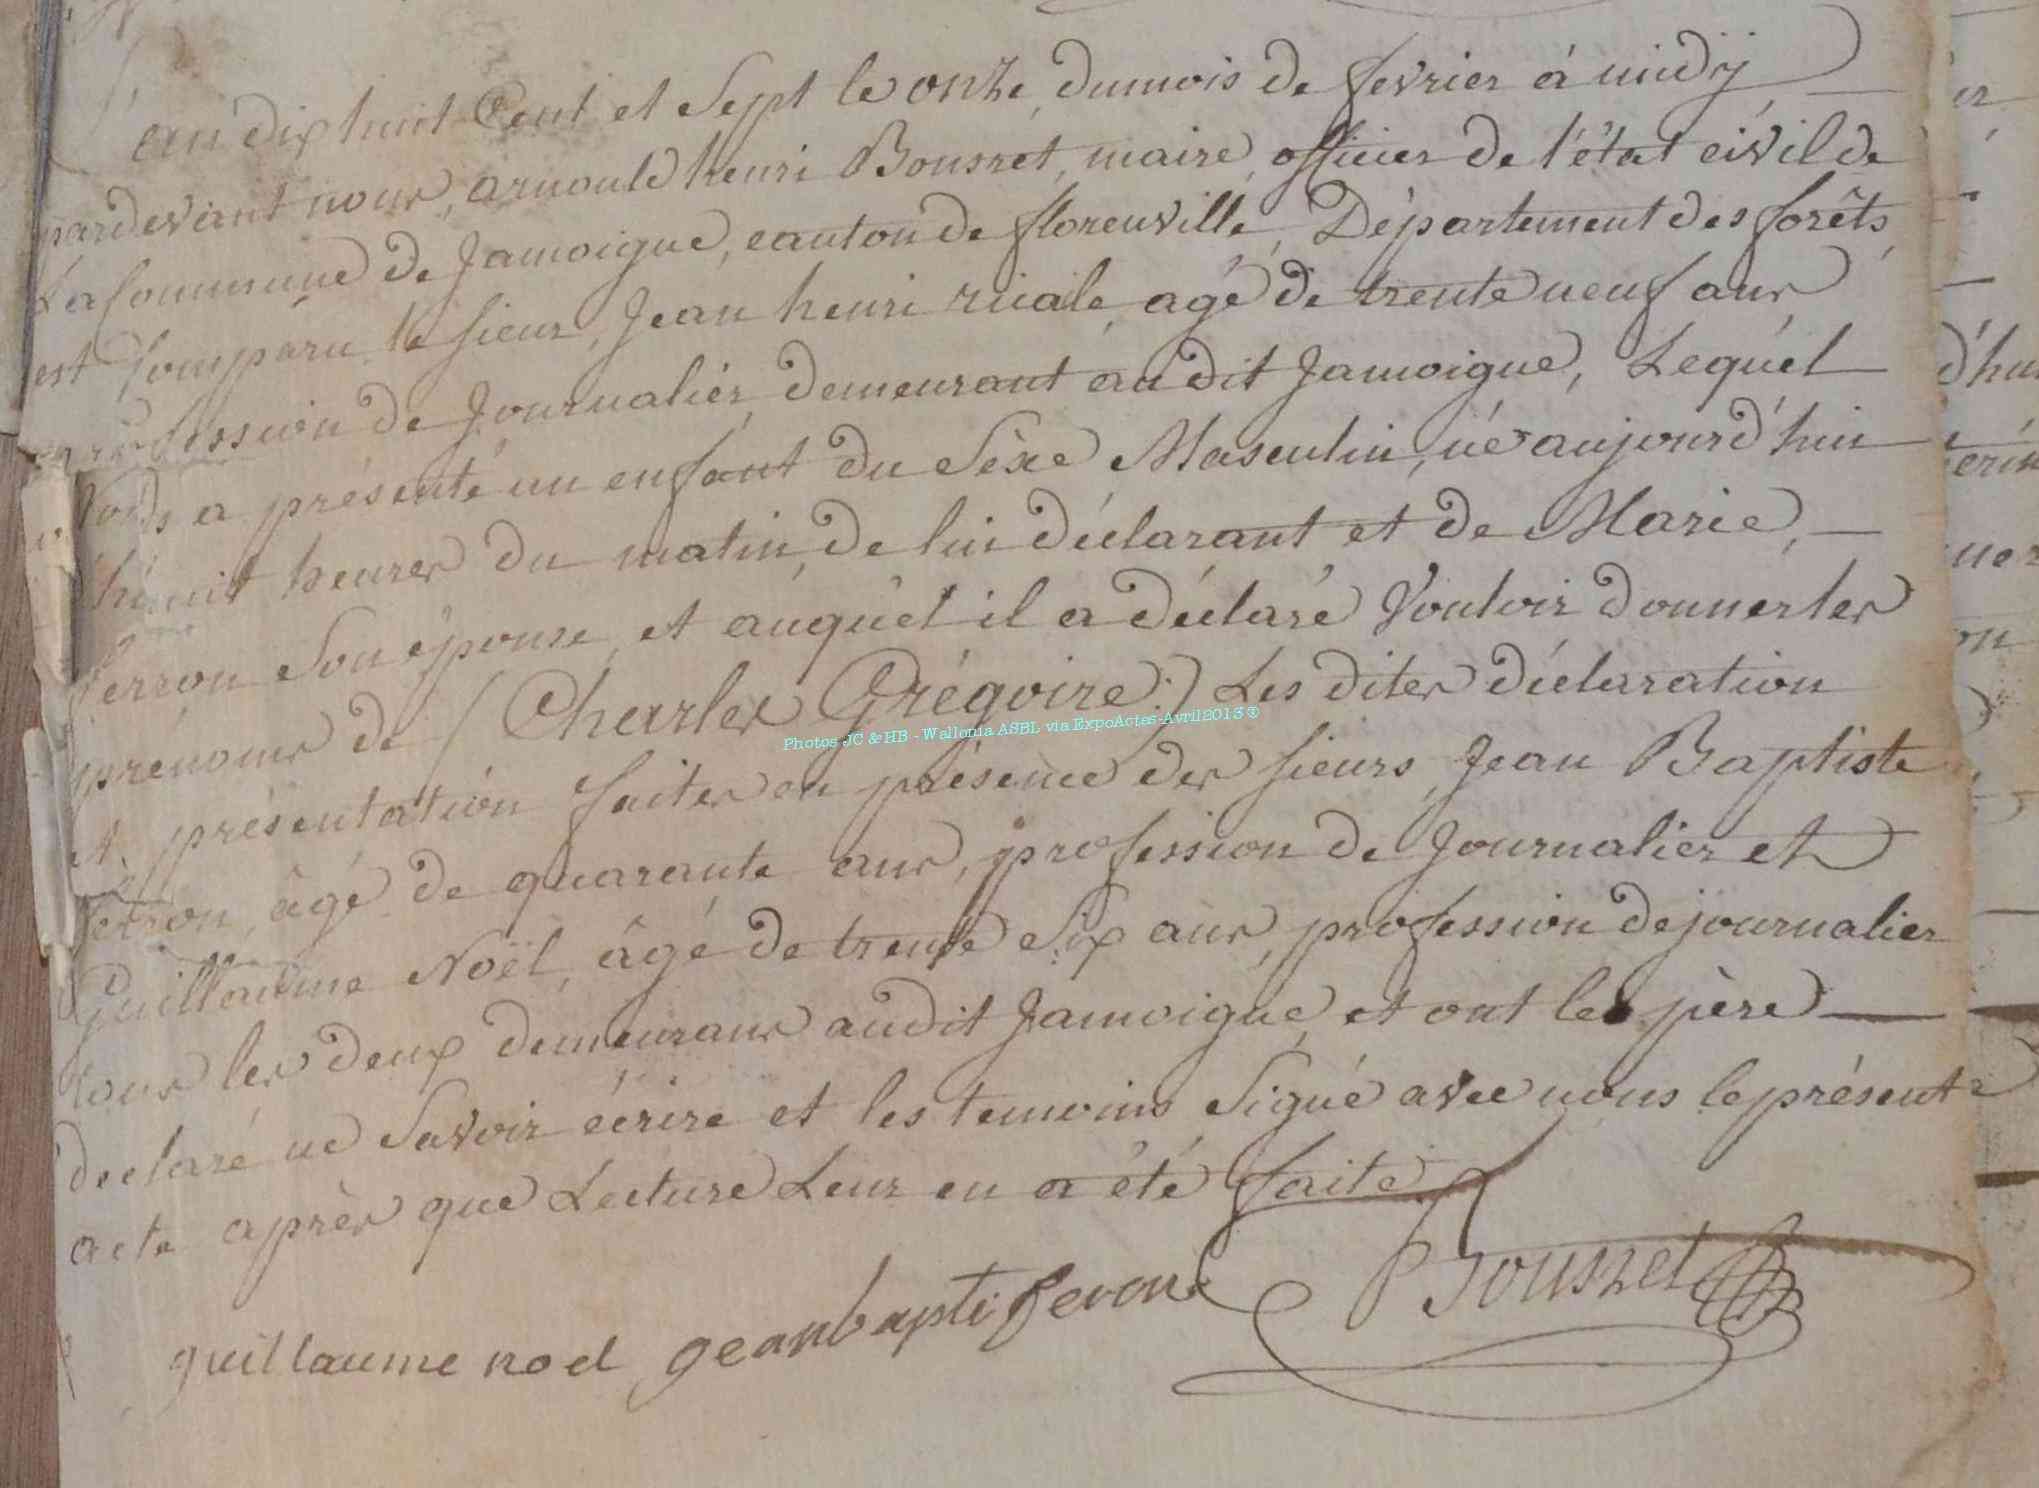 L'an dix huit Cent et Sept le onze du mois de fevrier á midÿ
pardevant nous, arnould henri Bousret, maire officier de l'état civil de
La Commune de Jamoigne, canton de florenville, Département des forêts,
est Comparu le Sieur, Jean henri riiale agé de trente neuf ans
profession de Journalier, demeurant au dit Jamoigne, Lequel
nous a présenté un enfant du Séxe Masculin, né aujourd'hui
huit heures du matin, de lui déclarant et de Marie,
ferron Son épouse, et auquel il a déclaré Vouloir donner les
prénoms de (Charles Grégoire:) Les dites déclaration
et présentation faites en présence des Sieurs, Jean Baptiste
ferron, âgé de quarante ans, profession de Journalier et
Guillaume Noël, âgé de trente Six ans, profession de journalier
tous les deux demeurans audit Jamoigne, et ont le père
declaré ne Savoir écrire et les temoins Signé avec nous le présent
acte après que Lecture Leur en a été faite
guillaume noel geanbapti feron Bousret
Photos JC & HB - Wallonia ASBL via ExpoActes-Avril2013 ®